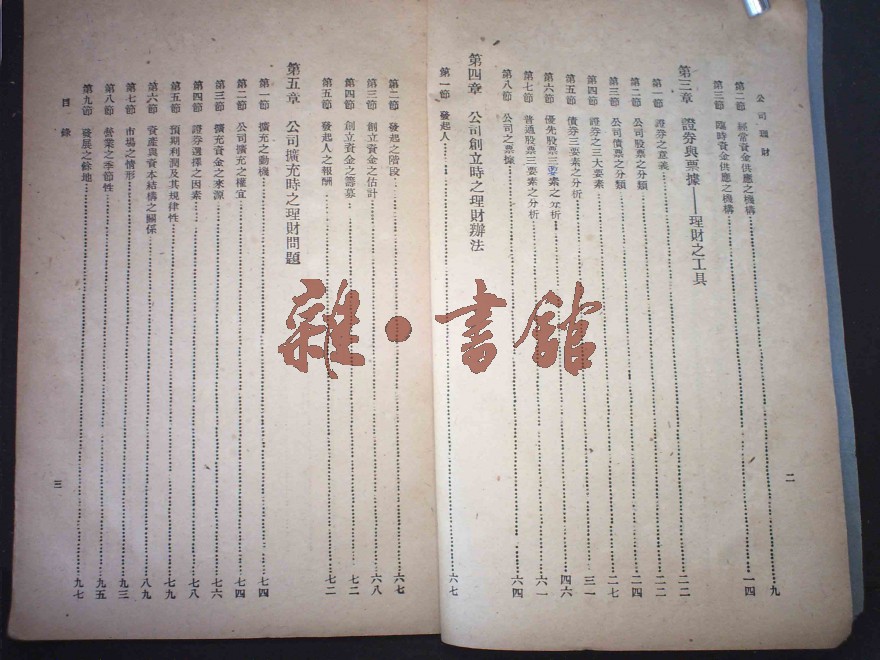 公司理財
二
第二節 經常資金供應之機構……九
第三節 臨時資金供應之機構……一四
第三章 證券與票據——理財之工具
第一節 證券之意義……二二
第二節 公司股票之分類……二二
第三節 公司債票之分類……二四
第四節 證券之三大要素……二七
第五節 債券三要素之分析……三一
第六節 優先股票三要素之分析……四六
第七節 普通股票三要素之分析……六一
第八節 公司之票據……六四
第四章 公司創立時之理財辦法
第一節 發起人……六七
第二節 發起之階段……六七
第三節 創立資金之估計……六八
第四節 創立資金之籌募……七二
第五節 發起人之報酬……七二
第五章 公司擴充時之理財問題
第一節 擴充之動機……七四
第二節 公司擴充之權宜……七四
第三節 擴充資金之來源……七六
第四節 證券選擇之因素……七八
第五節 預期利潤及其規律性……七九
第六節 資產與資本結構之關係……八九
第七節 市場之情形……九三
第八節 營業之季節性……九五
第九節 發展之餘地……九七
目錄
三
雜·書館